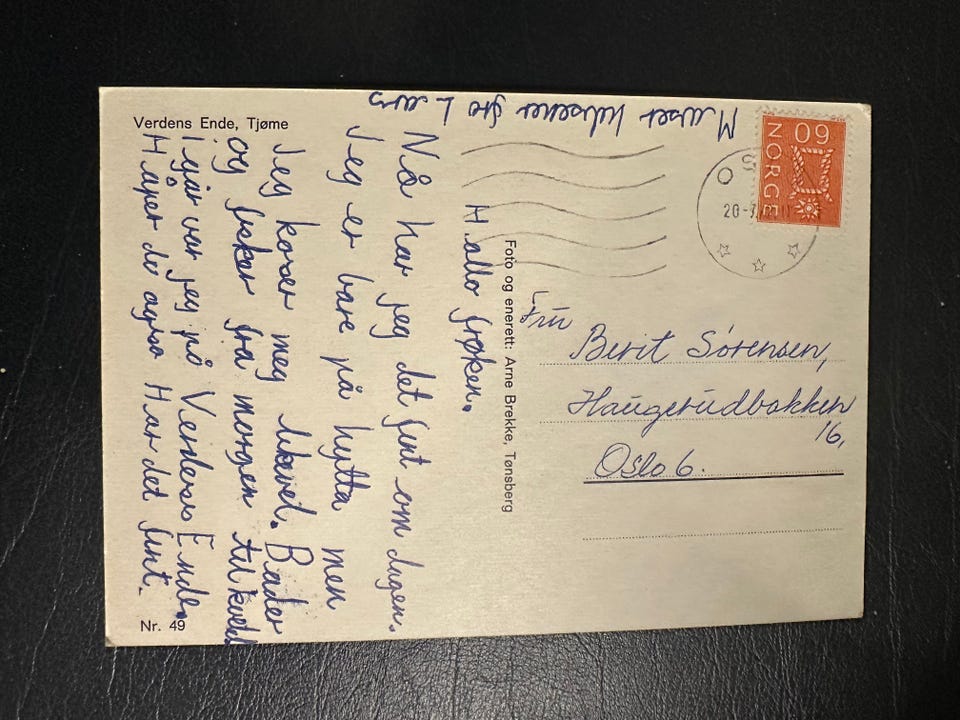 Verdens Ende, Tjøme
Hallo frøken.
Nå har jeg det fint om dagen.
Jeg er bare på hytta men
Jeg koser meg likevel. Bader
og fisker fra morgen til kveld
Igår var jeg på Verdens Ende.
Håper du også Har det fint.
Masser hilsener fra Lars
Nr. 49
Foto og enerett: Arne Brekke, Tønsberg
NORGE
60
OS
20-7
Fru
Berit Sørensen,
Haugerudbakken
16,
Oslo 6.